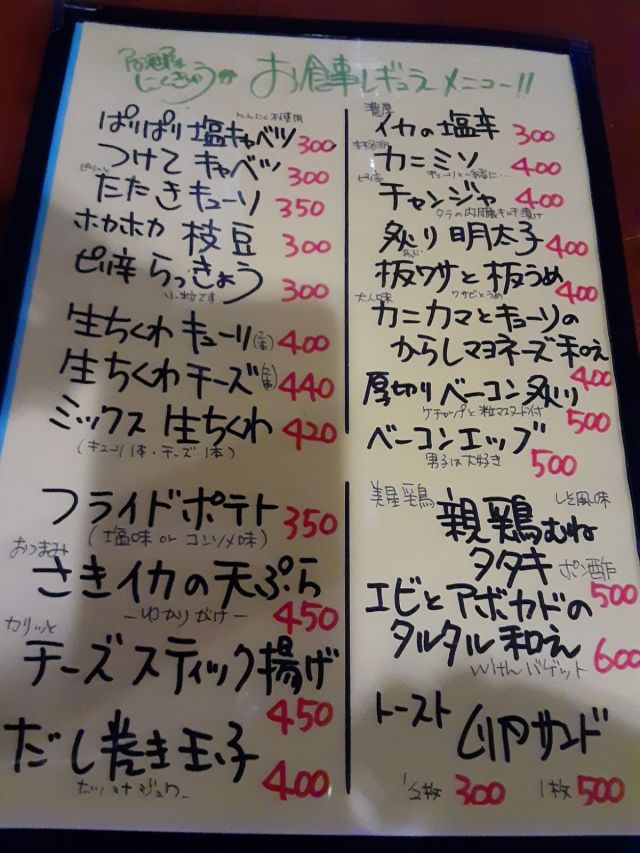 居酒屋 にくきゅう
お食事レギュラーメニュー!!
にんにく不使用
ぱりぱり塩キャベツ 300
つけてキャベツ 300
ピリッと
たたきキューリ 350
ホカホカ 枝豆 300
ピリ辛 らっきょう 300
小粒です
生ちくわキューリ(2本) 400
生ちくわチーズ(2本) 440
ミックス生ちくわ 420
(キューリ1本・チーズ1本)
フライドポテト 350
(塩味 or コンソメ味)
おつまみ
さきイカの天ぷら 450
ーゆかりがけー
カリッと
チーズスティック揚げ 450
だし巻き玉子 400
濃厚
イカの塩辛 300
本格派
カニミソ 400
キューリと一緒に…
ピリ辛
チャンジャ 400
タラの内臓キムチ漬け
炙り明太子 400
あぶ
板ワサと板うめ 400
ワサビとうめ
大人味
カニカマとキューリの
からしマヨネーズ和え 400
厚切りベーコン炙り 500
ケチャップと粒マスタード付
ベーコンエッグ 500
男子は大好き
美星鶏 親鶏むね しそ風味
タタキ ポン酢 500
エビとアボカドの
タルタル和え 600
withバゲット
トースト ハリヤサンド
1/2枚 300 1枚 500